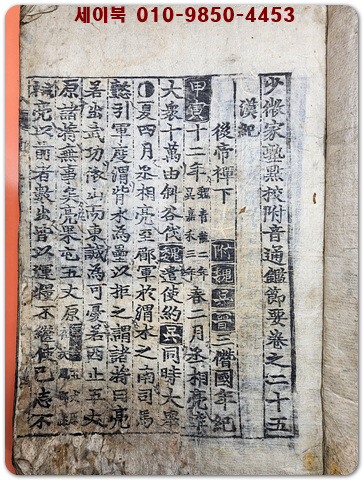 세이북 010-9850-4453
少微家塾點校附音通鑑節要卷之二十五
漢紀
後帝禪下 附魏吳晉三僭國年紀
甲寅十二年 魏青龍二年 吳嘉禾三年 春二月丞相亮
大衆十萬由斜谷伐魏遣使約吳同時大舉
夏四月丞相亮至郿軍於渭水之南司馬
懿引軍度渭背水爲壘以拒之謂諸將曰亮
若出武功依山而東誠爲可憂若西上五丈
原諸將無事矣亮果屯五丈原
亮以前者數出皆以運糧不繼使己志不